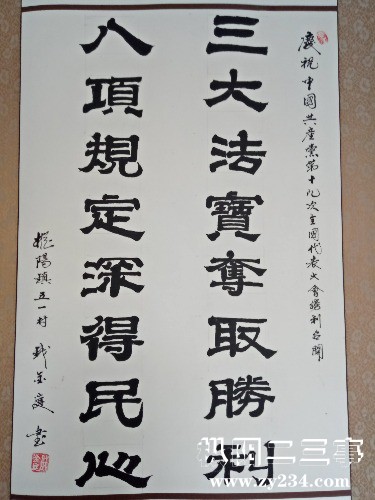 慶祝中國共產黨第十九次全國代表大會勝利召開
三大法寶奪取勝利
八項規定深得民心
樅陽鎮五一村
樅陽二三事
www.zy234.com